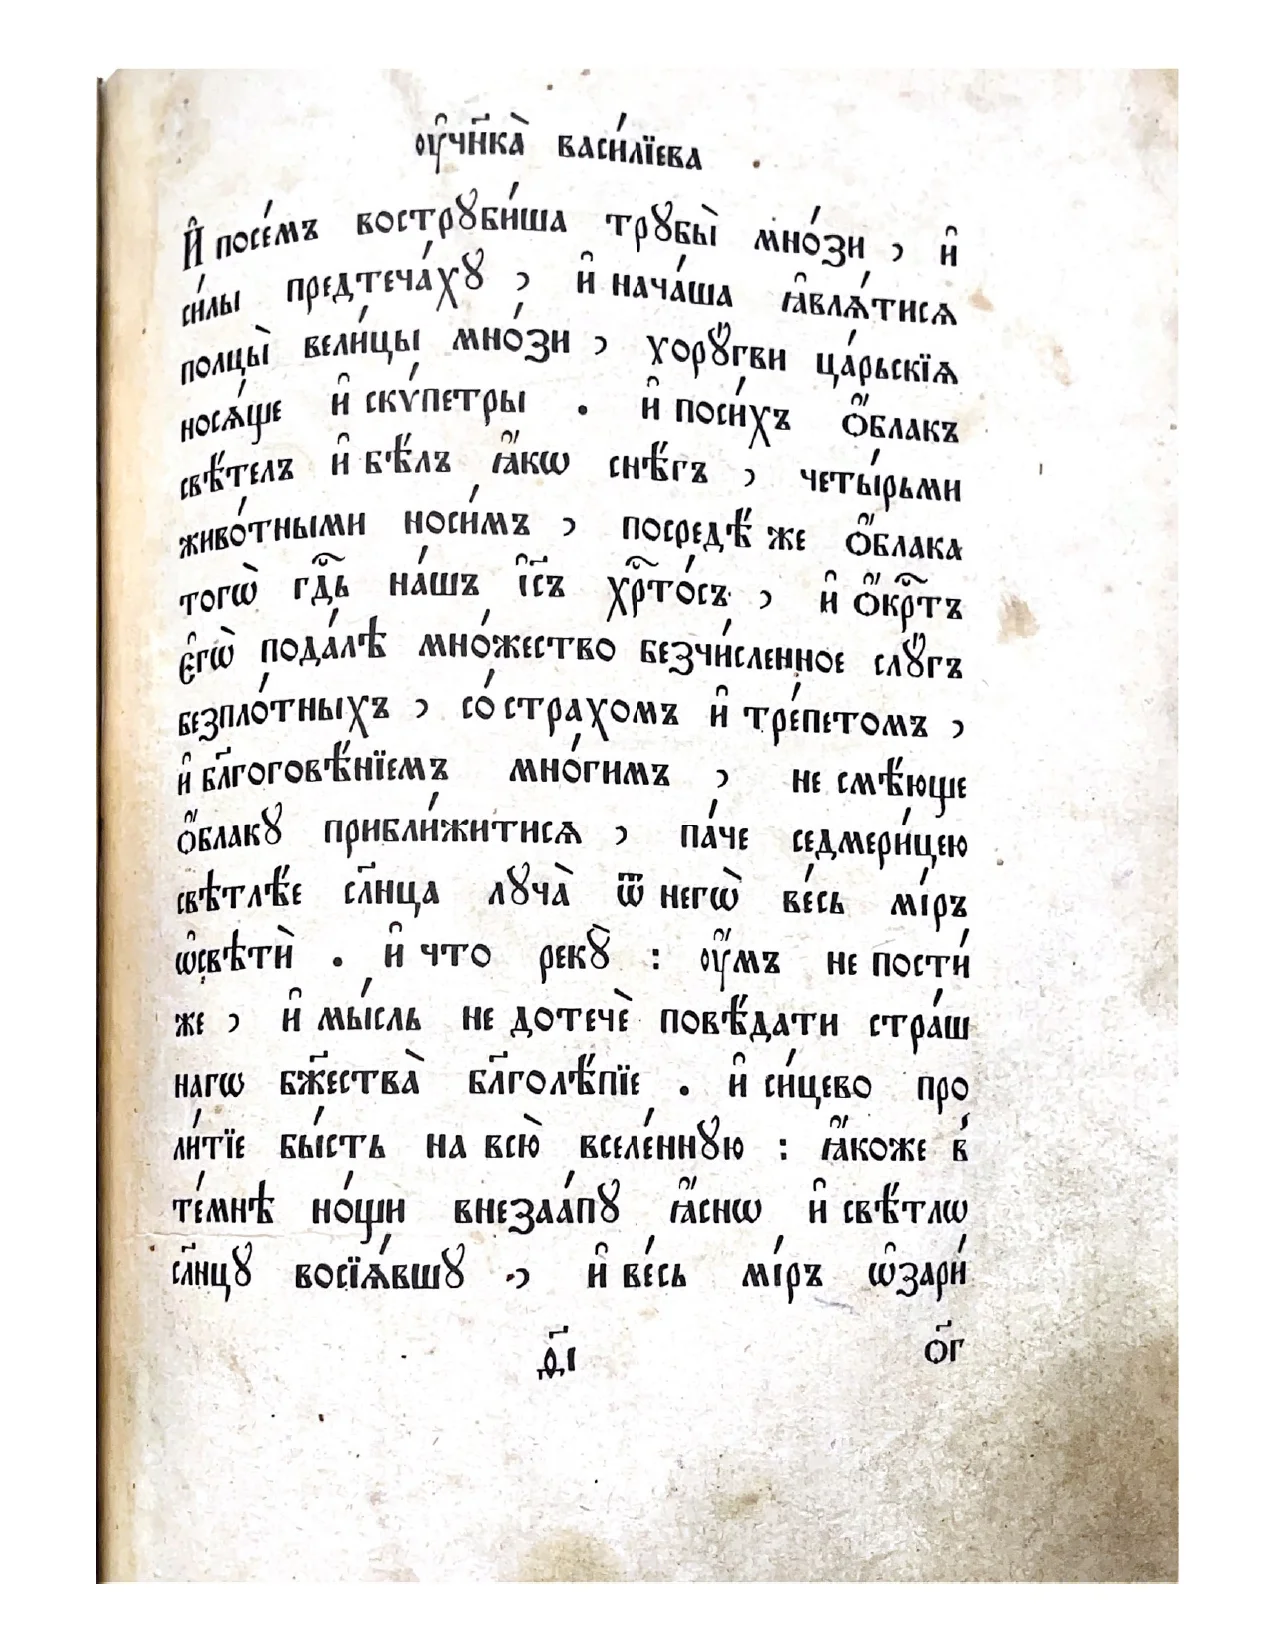 ᲂу҆чн҃ка̀ васи́лїева
И҆ посе́мъ вострꙋби́ша трꙋбы̀ мно́зи , и҆
си́лы предтеча́хꙋ , и҆ нача́ша ꙗ҆влѧ́тисѧ
полцы̀ вели́цы мно́зи , хорꙋ́гви ца́рьскїѧ
носѧ́ще и҆ скѵ́петры . и҆ поси́хъ ѻ҆́блакъ
свѣ́телъ и҆ бѣ́лъ ꙗ҆́кѡ снѣ́гъ , четы́рьми
живо́тными носи́мъ , посредѣ́ же ѻ҆́блака
тогѡ̀ гдⷭ҇ь на́шъ і҆с҃ъ хрⷭ҇то́съ , и҆ ѻ҆́крⷭ҇тъ
є҆гѡ̀ пода́лѣ мно́жество безчи́сленное слꙋ́гъ
безпло́тныхъ , со́ страхомъ и҆ тре́петомъ ,
и҆ бл҃гоговѣ́нїемъ мно́гимъ , не смѣ́юще
ѻ҆́блакꙋ прибли́житисѧ , па́че седмери́цею
свѣтлѣ́е сл҃нца лꙋча̀ ѿ негѡ̀ ве́сь мі́ръ
ѡ҆свѣтѝ . и҆ что рекꙋ̀ : ᲂу҆́мъ не пости́
же , и҆ мы́сль не дотечѐ повѣ́дати стра́ш
нагѡ бж҃ества̀ бл҃голѣ́пїе . и҆ си́цево про
ли́тїе бы́сть на всю̀ вселе́ннꙋю : ꙗ҆́коже в́
те́мнѣ но́щи внезаа́пꙋ ꙗ҆́снѡ и҆ свѣ́тлѡ
сл҃нцꙋ восїѧ́вшꙋ , и҆ ве́сь мі́ръ ѡ҆зари́
д҃і ѻ҃г